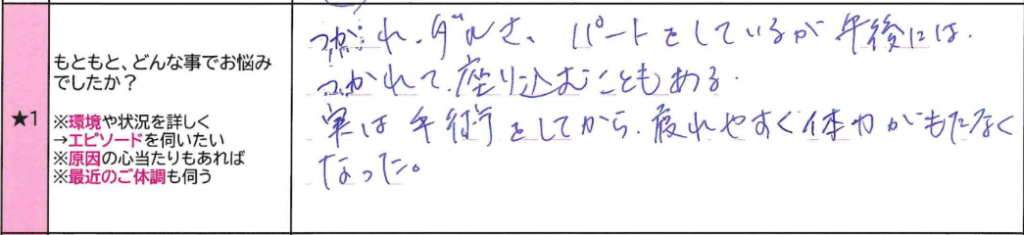 ★1
もともと、どんな事でお悩み
でしたか？
※環境や状況を詳しく
→エピソードを伺いたい
※原因の心当たりもあれば
※最近のご体調も伺う
つかれ、ダルさ、パートをしているが午後には、
つかれて、座り込むこともある。
実は手術をしてから、疲れやすく体力がもたなく
なった。